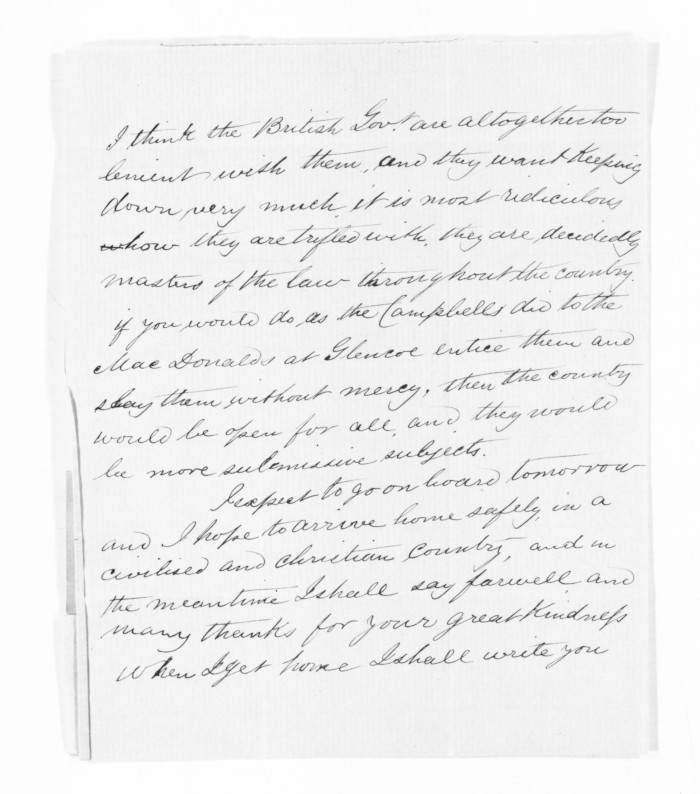 I think the British Govt. are altogether too
lenient with them, and they want Keeping
down very much, it is most ridiculous
how they are trifled with, they are decidedly
masters of the law throughout the country.
if you would do as the Campbells did to the
MacDonalds at Glencoe entice them and
slay them without mercy, then the county
would be open for all, and they would
be more submissive subjects.
I expect to go on board tomorrow
and I hope to arrive home safely, in a
civilised and christian Country, and in
the meantime I shall say farwell and
many thanks for your great Kindness
When I get home I shall write you